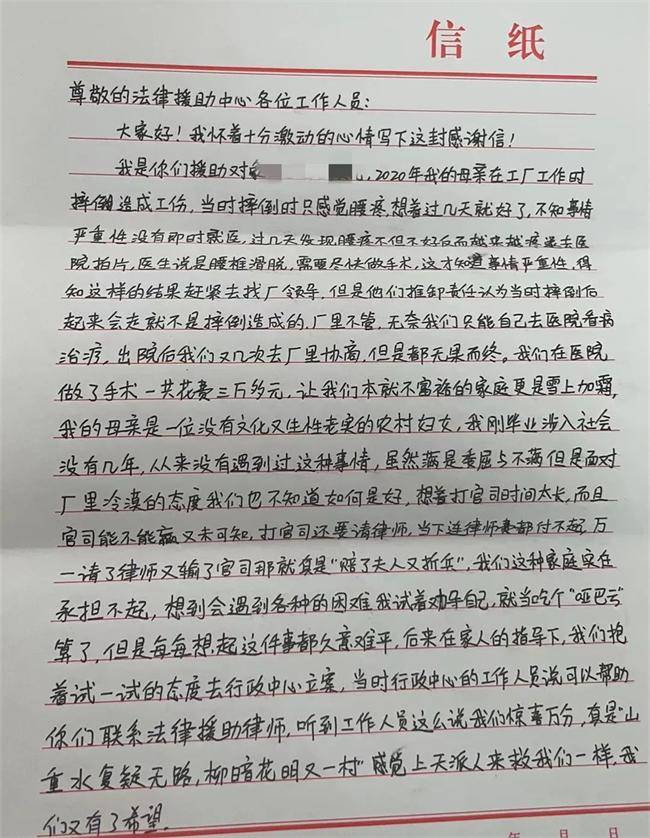 信 纸
尊敬的法律援助中心各位工作人员:
大家好!我怀着十分激动的心情写下这封感谢信!
我是你们援助对 ,2020年我的母亲在工厂工作时
摔倒造成工伤,当时摔倒时只感觉腰疼,想着过几天就好了,不知事情
严重性没有即时就医,过几天发现腰疼不但不好反而越来越疼 去医
院拍片,医生说是腰椎滑脱,需要尽快做手术,这才知道事情严重性,得
知这样的结果赶紧去找厂领导,但是他们推卸责任认为当时摔倒后
起来会走就不是摔倒造成的,厂里不管,无奈我们只能自己去医院看病
治疗,出院后我们又几次去厂里协商,但是都无果而终。我们在医院
做了手术一共花费三万多元,让我们本就不富裕的家庭更是雪上加霜,
我的母亲是一位没有文化又生性老实的农村妇女,我刚毕业涉入社会
没有几年,从来没有遇到过这种事情,虽然满是委屈与不满但是面对
厂里冷漠的态度我们也不知道如何是好,想着打官司时间太长,而且
官司能不能赢又未可知,打官司还要请律师,当下连律师 都付不起,万
一请了律师又输了官司那就真是“赔了夫人又折兵”,我们这种家庭实在
承担不起,想到会遇到各种的困难我试着劝导自己,就当吃个“哑巴亏”
算了,但是每每想起这件事都久意难平,后来在家人的指导下,我们抱
着试一试的态度去行政中心立案,当时行政中心的工作人员说可以帮助
你们联系法律援助律师,听到工作人员这么说我们惊喜万分,真是“山
重水复疑无路,柳暗花明又一村”感觉上天派人来救我们一样,我
们又有了希望。
年 月 日